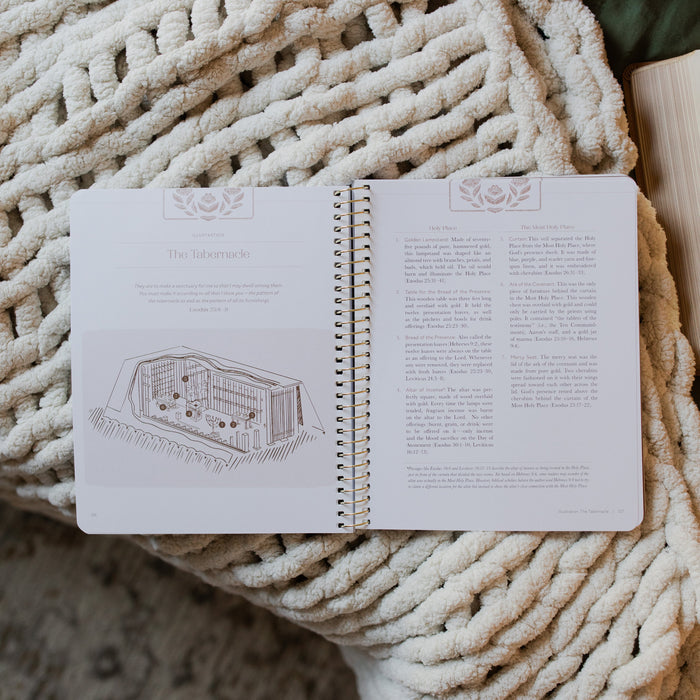 ILLUSTRATION
The Tabernacle
They are to make a sanctuary for me so that I may dwell among them.
You must make it according to all that I show you—the pattern of
the tabernacle as well as the pattern of all its furnishings.
Exodus 25:8–9
Holy Place
1. Golden Lampstand: Made of seventy-
five pounds of pure, hammered gold,
this lampstand was shaped like an
almond tree with branches, petals, and
buds, which held oil. The oil would
burn and illuminate the Holy Place
(Exodus 25:31–40).
2. Table for the Bread of the Presence:
This wooden table was three feet long
and overlaid with gold. It held the
twelve presentation loaves, as well
as the pitchers and bowls for drink
offerings (Exodus 25:23–30).
3. Bread of the Presence: Also called the
presentation loaves (Hebrews 9:2), these
twelve loaves were always on the table
as an offering to the Lord. Whenever
any were removed, they were replaced
with fresh loaves (Exodus 25:23–30,
Leviticus 24:5–8).
4. Altar of Incense*: The altar was per-
fectly square, made of wood overlaid
with gold. Every time the lamps were
tended, fragrant incense was burnt
on the altar to the Lord. No other
offerings (burnt, grain, or drink) were
to be offered on it—only incense
and the blood sacrifice on the Day of
Atonement (Exodus 30:1–10, Leviticus
16:12–13).
The Most Holy Place
5. Curtain: This veil separated the Holy
Place from the Most Holy Place, where
God's presence dwelt. It was made of
blue, purple, and scarlet yarn and fine-
spun linen, and it was embroidered
with cherubim (Exodus 26:31–33).
6. Ark of the Covenant: This was the only
piece of furniture behind the curtain
in the Most Holy Place. This wooden
chest was overlaid with gold and could
only be carried by the priests using
poles. It contained "the tablets of the
testimony" (i.e., the Ten Command-
ments), Aaron's staff, and a gold jar
of manna (Exodus 25:10–16, Hebrews
9:4).
7. Mercy Seat: The mercy seat was the
lid of the ark of the covenant and was
made from pure gold. Two cherubim
were fashioned on it with their wings
spread toward each other across the
lid. God's presence rested above the
cherubim of the Most Holy Place
(Exodus 25:17–22).
Illustration: The Tabernacle | 107